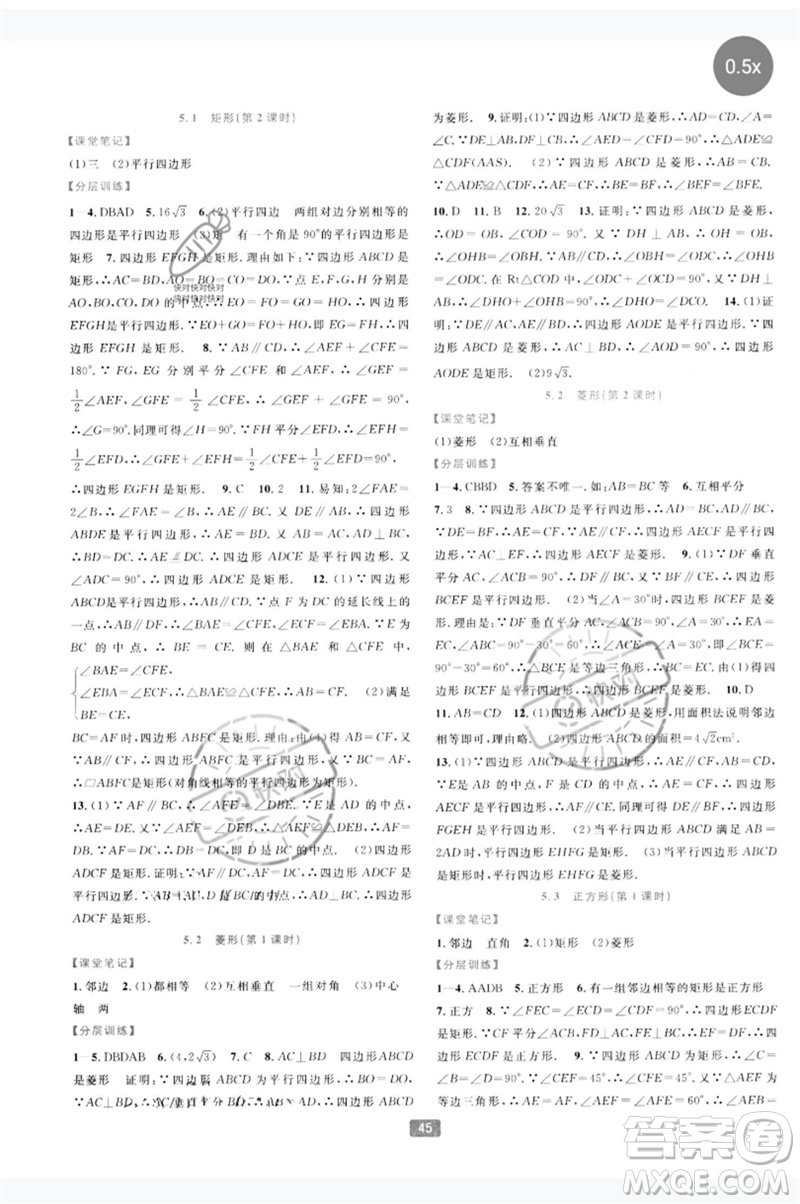 0.5x
5.1 矩形(第2课时)
【课堂笔记】
(1)三 (2)平行四边形
【分层训练】
1—4.DBAD 5.16√3 6.(2)平行四边 两组对边分别相等的
四边形是平行四边形 (3)矩 有一个角是90°的平行四边形是
矩形 7.四边形EFGH是矩形. 理由如下:∵四边形ABCD是
矩形,∴AC=BD,AO=BO=CO=DO.∵E,F,G,H分别是
AO,BO,CO,DO的中点,∴EO=FO=GO=HO,∴四边形
EFGH是平行四边形.∵EO+GO=FO+HO,即EG=FH,∴四
边形EFGH是矩形. 8.∵AB∥CD,∴∠AEF+∠CFE=
180°.∵FG,EG分别平分∠CFE和∠AEF,∴∠GEF=
1/2∠AEF,∠GFE=1/2∠CFE,∴∠GEF+∠GFE=90°,
∴∠G=90°.同理可得∠H=90°.∵FH平分∠EFD,∴∠EFH=
1/2∠EFD,∴∠GFE+∠EFH=1/2∠CFE+1/2∠EFD=90°,
∴四边形EGFH是矩形. 9.C 10.2 11.易知:∠FAE=
2∠B,∴∠B=∠FAD,∴AE∥BC.又∵DE∥AB,∴四边形
ABDE是平行四边形,∴AE=BD.∵AB=AC,AD⊥BC,∴BD=
DC,∴AE=DC.∵AE∥DC,∴四边形ADCE是平行四边形. 又
∵∠ADC=90°,∴四边形ADCE是矩形. 12.(1)∵四边形
ABCD是平行四边形,∴AB∥CD.∵点F为DC的延长线上的
一点,∴AB∥DF,∴∠BAE=∠CFE,∠ECF=∠EBA.∵E为
BC的中点,∴BE=CE. 则在△BAE和△CFE中,
∠BAE=∠CFE,
∠ECF=∠EBA,∴△BAE≌△CFE,∴AB=CF. (2)满足
BE=CE,
BC=AF时,四边形ABFC是矩形.理由:由(1)得AB=CF.
∵AB∥CF,∴四边形ABFC是平行四边形.∵BC=AF,
∴▱ABFC是矩形(对角线相等的平行四边形为矩形).
13.(1)∵AF∥BC,∴∠AFE=∠DBE.∵E是AD的中点,
∴AE=DE.又∵∠AEF=∠DEB,∴△AEF≌△DEB,∴AF=
DB.又∵AF=DC,∴DB=DC,即D是BC的中点. (2)四边形
ADCF是矩形. 证明:∵AF∥DC,AF=DC,∴四边形ADCF是
平行四边形.∵AB=AC,D是BC的中点,∴AD⊥BC,∴四边形
ADCF是矩形.
5.2 菱形(第1课时)
【课堂笔记】
1.邻边 2.(1)都相等 (2)互相垂直 一组对角 (3)中心
轴 两
【分层训练】
1—5.DBDAB 6.(4,2√3) 7.C 8.AC⊥BD 四边形ABCD
是菱形 证明:∵四边形ABCD为平行四边形,∴BO=DO.
∵AC⊥BD,∴AC垂直平分BD,∴AB=AD,∴四边形ABCD
为菱形. 9.证明:(1)∵四边形ABCD是菱形,∴AD=CD,∠A=
∠C.∵DE⊥AB,DF⊥BC,∴∠AED=∠CFD=90°,∴△ADE≌
△CDF(AAS). (2)∵四边形ABCD是菱形,∴AB=CB.
∵△ADE≌△CDF,∴AE=CF,∴BE=BF.
10.D 11.B 12.20√3 13.证明:∵四边形ABCD是菱形,
∴OD=OB,∠COD=90°.∵DH⊥AB,∴OH=OB,
∴∠OHB=∠OBH.又∵AB∥CD,∴∠OBH=∠ODC,
∴∠OHB=∠ODC.在Rt△COD中,∠ODC+∠OCD=90°,
∴∠DHO+∠OHB=90°,∴∠DHO=∠DCO. 14.(1)证
明:∵DE∥AC,AE∥BD,∴四边形AODE是平行四边形.∵四
边形ABCD是菱形,∴AC⊥BD,∴∠AOD=90°,∴四边形
AODE是矩形. (2)9√3.
5.2 菱形(第2课时)
【课堂笔记】
(1)菱形 (2)互相垂直
【分层训练】
1—4.CBBD 5.答案不唯一.如:AB=BC等 6.互相平分
7.3 8.∵四边形ABCD是平行四边形,∴AD=BC.∵DE=BF,
∴AE=CF.又∵AE∥CF,∴四边形AECF是平行四边形.
∵AC⊥EF,∴四边形AECF是菱形. 9.(1)∵DF垂直
平分AC,∠ACB=90°,∴DF∥BC.又∵BF∥CE,∴四边形
BCEF是平行四边形. (2)当∠A=30°时,四边形BCEF是
菱形.∵四边形BCEF是平行四边形,∴DF垂直平分AC,∴EA=
EC,∠ABC=90°-30°=60°,∴∠ACE=∠A=30°,∴∠BCE=
90°-30°=60°,∴△BCE是等边三角形,∴BC=CE,∴四边形
BCEF是平行四边形,∴四边形BCEF是菱形. 10.D
11.AB=CD 12.(1)四边形ABCD是菱形,用面积法说明邻边
相等即可,理由略. (2)四边形ABCD的面积=4√2cm².
13.(1)∵E,F分别是AD,BC的中点,∴AE=1/2AD,CF=1/2BC.
∵四边形ABCD是平行四边形,∴AE∥CF,AE=CF,∴四边形
AECF是平行四边形,∴GF∥EH.同理可得ED∥BF,∴四边形
FGEH是平行四边形. (2)当平行四边形ABCD满足AB=
2AD时,平行四边形EHFG是矩形. (3)当平行四边形ABCD
是矩形时,平行四边形EHFG是菱形.
5.3 正方形(第1课时)
【课堂笔记】
1.邻边 直角 2.(1)矩形 (2)菱形
【分层训练】
1—4.AADB 5.正方形 6.有一组邻边相等的矩形是正方形
7.正方 8.∵∠FEC=∠ECD=∠CDF=90°,∴四边形ECDF
是矩形.∵∠DCF=∠CFD=45°,∴CD=DF,∴四边形ECDF
是正方形. 9.∵四边形ABCD为矩形,∴∠B=∠D=
∠C=90°.∵△AEF是等边三角形,∴AE=AF,∠AEF=
∠AFE=60°.又∵∠CEF=45°,∴∠CFE=45°,∴∠AEB=
∠AFD=75°,∴△ABE≌△ADF,∴AB=AD,∴矩形ABCD
45
快对快对快对
快对快对快对
答案卷
MXQE.COM